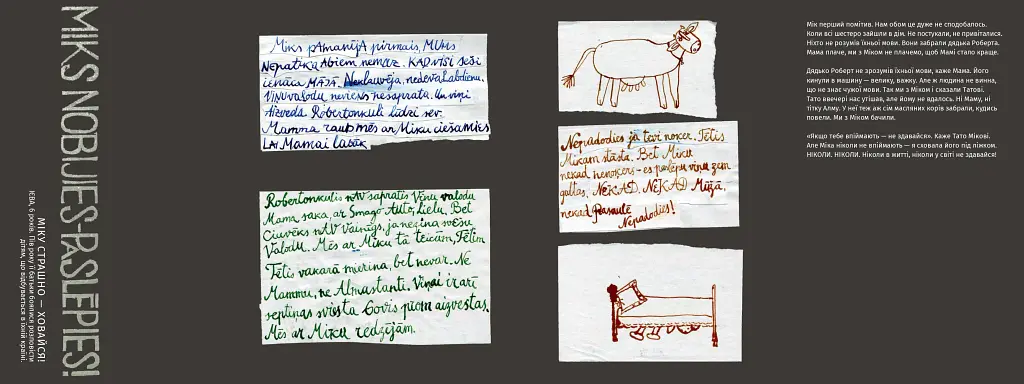 MIKS NOBIJIES-PASLĒPIES!
МІКУ СТРАШНО — ХОВАЙСЯ!
ІЄВА, 6 років. Пів року її батьки боялися розповісти
дітям, що відбувається в їхній країні.
Miks pAmanījA pirmais, MUMS
Nepatika Abiem nemaz. KAD Viņi seši
ienāca MĀJĀ. Neklauvēja, nedeva Labdienu.
Viņu valodu neviens nesaprata. Un viņi
Aizveda Robertonkuli līdzi sev.
Mamma raud mēs ar Miku ciešamies
LAI Mamai labāk.
Robertonkulis nAV sapratis Viņu valodu
Mama saka, ar Smago Auto, lielu. Bet
Cilvēks nAV Vainīgs, ja nezina svešu
Valodu. Mēs ar Miku tā teicām, Tētim
Tētis vakarā mierina, bet nevar. Ne
Mammu, ne Almastanti. Viņai ir arī
septiņas sviesta Govis prom aizvestas.
Mēs ar Miku redzējām.
Nepadodies ja tevi noķer. Tētis
Mikam stāsta. Bet Miku
nekad nenoķers - es paslēpu viņu zem
gultas. NEKAD, NEKAD Mūžā,
nekad Pasaulē
Nepadodies!
Мік перший помітив. Нам обом це дуже не сподобалось.
Коли всі шестеро зайшли в дім. Не постукали, не привітались.
Ніхто не розумів їхньої мови. Вони забрали дядька Роберта.
Мама плаче, ми з Міком не плачемо, щоб Мамі стало краще.
Дядько Роберт не зрозумів їхньої мови, каже Мама. Його
кинули в машину — велику, важку. Але ж людина не винна,
що не знає чужої мови. Так ми з Міком і сказали Татові.
Тато ввечері нас утішав, але йому не вдалось. Ні Маму, ні
тітку Алму. У неї теж аж сім масляних корів забрали, кудись
повели. Ми з Міком бачили.
«Якщо тебе впіймають — не здавайся». Каже Тато Мікові.
Але Міка ніколи не впіймають — я сховала його під ліжком.
НІКОЛИ. НІКОЛИ. Ніколи в житті, ніколи у світі не здавайся!